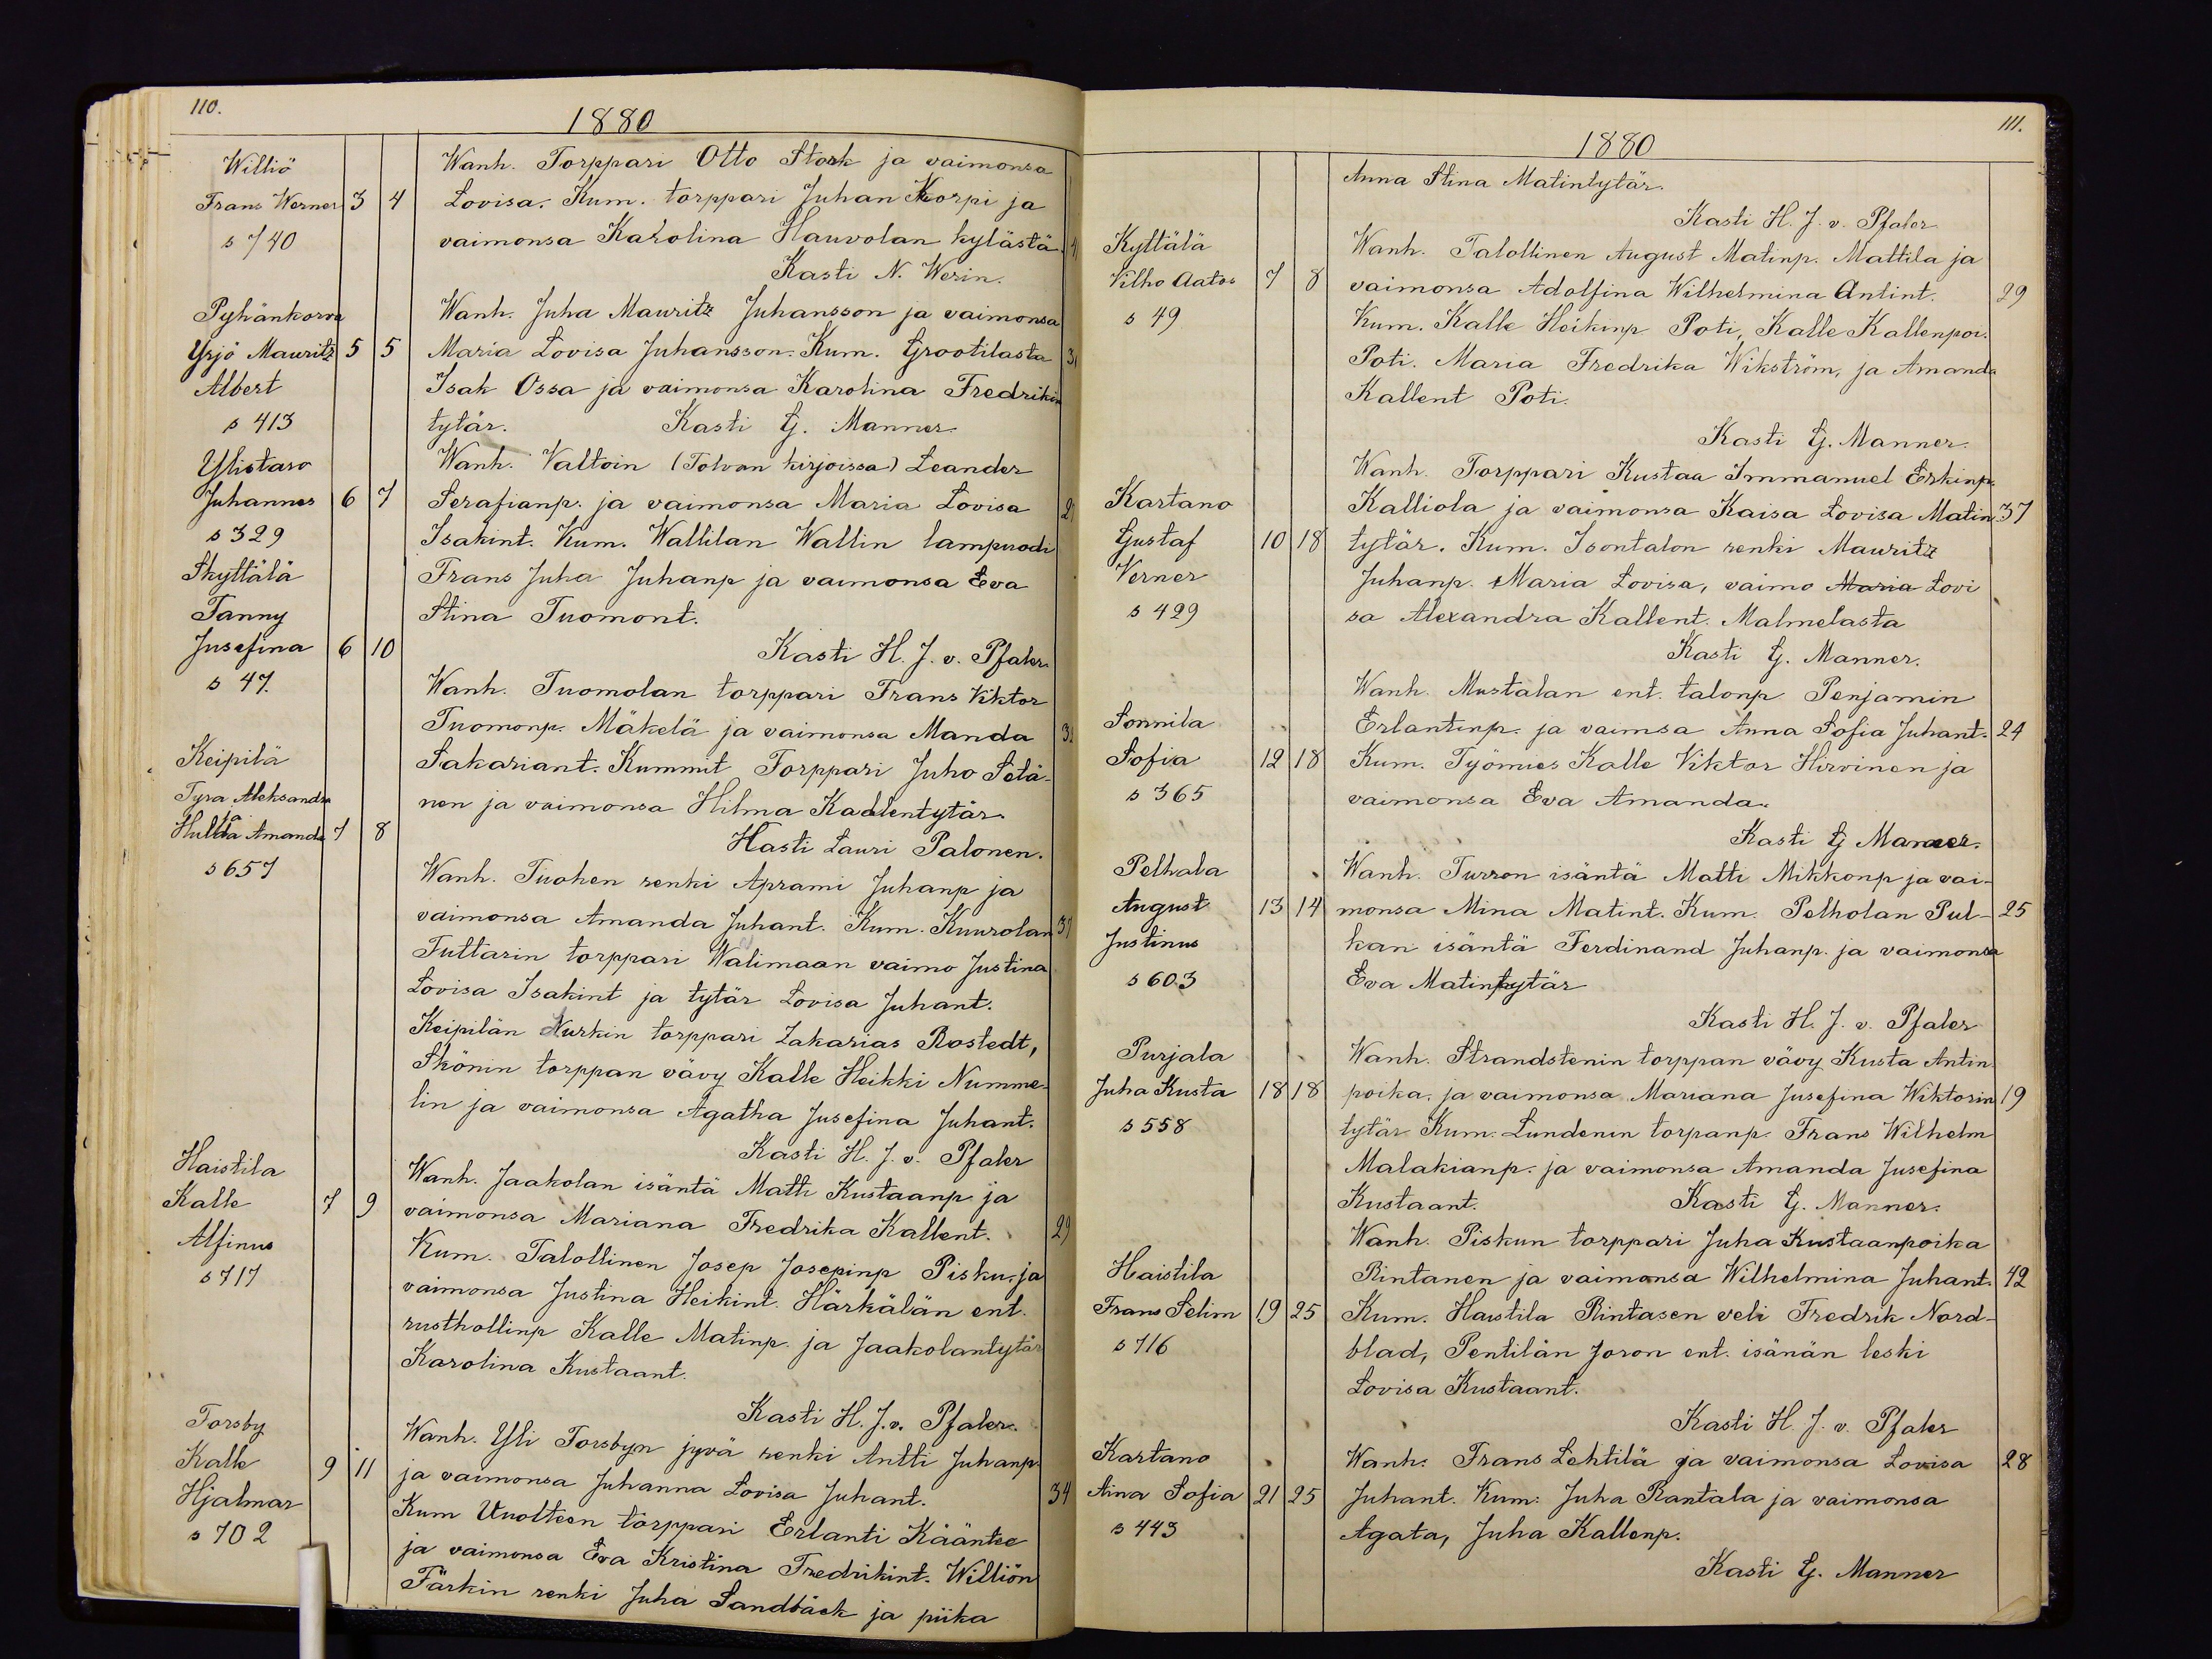 110.
1880
Williö
Frans Werner 3 4
s 740
Wanh. Torppari Otto Stark ja vaimonsa
Lovisa. Kum. torppari Juhan Korpi ja
vaimonsa Karolina Hauvolan kylästä.
Kasti N. Werin.
Pyhänkorva
Yrjö Mauritz 5 5
Albert
s 413
Wanh. Juha Mauritz Juhansson ja vaimonsa
Maria Lovisa Juhansson. Kum. Grootilasta
Isak Ossa ja vaimonsa Karolina Fredrikin
tytär. Kasti G. Manner
Ylistaro
Juhannes 6 7
s 329
Wanh. Valtoin (Tolvan kirjoissa) Leander
Serafianp. ja vaimonsa Maria Lovisa
Isakint. Kum. Wallilan Wallin lampuodi
Frans Juha Juhanp ja vaimonsa Eva
Stina Tuomont.
Kasti H. J. v. Pfaler.
Skyttälä
Fanny
Jusefina 6 10
s 47.
Wanh. Tuomolan torppari Frans Viktor
Tuomonp. Mäkelä ja vaimonsa Manda
Sakariant. Kummit Torppari Juho Setä-
nen ja vaimonsa Hilma Kaalentytär.
Kasti Lauri Palonen.
Keipilä
Tyra Aleksandra
ja
Hulda Amanda 7 8
s 657
Wanh. Tuohen renki Aprami Juhanp ja
vaimonsa Amanda Juhant. Kum. Kuurolan
Tuttarin torppari Walimaan vaimo Justina
Lovisa Isakint ja tytär Lovisa Juhant.
Keipilän Nurkin torppari Zakarias Rostedt,
Skönin torppan vävy Kalle Heikki Numme-
lin ja vaimonsa Agatha Jusefina Juhant.
Kasti H. J. v. Pfaler
Haistila
Kalle 7 9
Alfinus
s 717
Wanh. Jaakolan isäntä Matti Kustaanp ja
vaimonsa Mariana Fredrika Kallent. 29
Kum. Talollinen Josep Josepinp Pisku. ja
vaimonsa Justina Heikint. Härkälän ent.
rusthollinp Kalle Matinp. ja Jaakolantytär
Karolina Kustaant.
Kasti H. J. v. Pfaler.
Torsby
Kalle 9 11
Hjalmar
s 702
Wanh. Yli Torsbyn jyvä renki Antti Juhanp
ja vaimonsa Juhanna Lovisa Juhant. 34
Kum Uuolteen torppari Erlanti Kääntee
ja vaimonsa Eva Kristina Fredrikint. Williön
Färkin renki Juha Sandbäck ja piika
111.
1880
Anna Stina Matintytär.
Kasti H. J. v. Pfaler
Kyttälä
Vilho Aatos 7 8
s 49
Wanh. Talollinen August Matinp. Mattila ja
vaimonsa Adolfina Wilhelmina Antint. 29
Kum. Kalle Heikinp Poti, Kalle Kallenpoi.
Poti. Maria Fredrika Wikström, ja Amanda
Kallent Poti.
Kasti G. Manner.
Kartano
Gustaf 10 18
Verner
s 429
Wanh. Torppari Kustaa Immanuel Erkinp.
Kalliola ja vaimonsa Kaisa Lovisa Matin 37
tytär. Kum. Isontalon renki Mauritz
Juhanp. Maria Lovisa, vaimo Maria Lovi
sa Alexandra Kallent. Malmelasta
Kasti G. Manner.
Sonnila
Sofia 12 18
s 365
Wanh. Mustalan ent. talonp Penjamin
Erlantinp. ja vaimsa Anna Sofia Juhant. 24
Kum. Työmies Kalle Viktor Hirvinen ja
vaimonsa Eva Amanda.
Kasti G Manner.
Pelhala
August 13 14
Justinus
s 603
Wanh. Turron isäntä Matti Mikkonp ja vai-
monsa Mina Matint. Kum. Pelholan Pul- 25
kan isäntä Ferdinand Juhanp. ja vaimonsa
Eva Matintytär
Kasti H. J. v. Pfaler
Purjala
Juha Kusta 18 18
s 558
Wanh. Strandstenin torppan vävy Kusta Antin
poika, ja vaimonsa Mariana Jusefina Wiktorin 19
tytär Kum. Lundenin torpanp. Frans Wilhelm
Malakianp. ja vaimonsa Amanda Jusefina
Kustaant. Kasti G. Manner.
Haistila
Frans Selim 19 25
s 716
Wanh. Piskun torppari Juha Kustaanpoika
Rintanen ja vaimonsa Wilhelmina Juhant. 42
Kum. Haistila Rintasen veli Fredrik Nord-
blad, Pentilän Joron ent. isänän leski
Lovisa Kustaant.
Kasti H. J. v. Pfaler
Kartano
Aina Sofia 21 25
s 443
Wanh. Frans Lehtilä ja vaimonsa Lovisa 28
Juhant. Kum: Juha Rantala ja vaimonsa
Agata, Juha Kallenp.
Kasti G. Manner